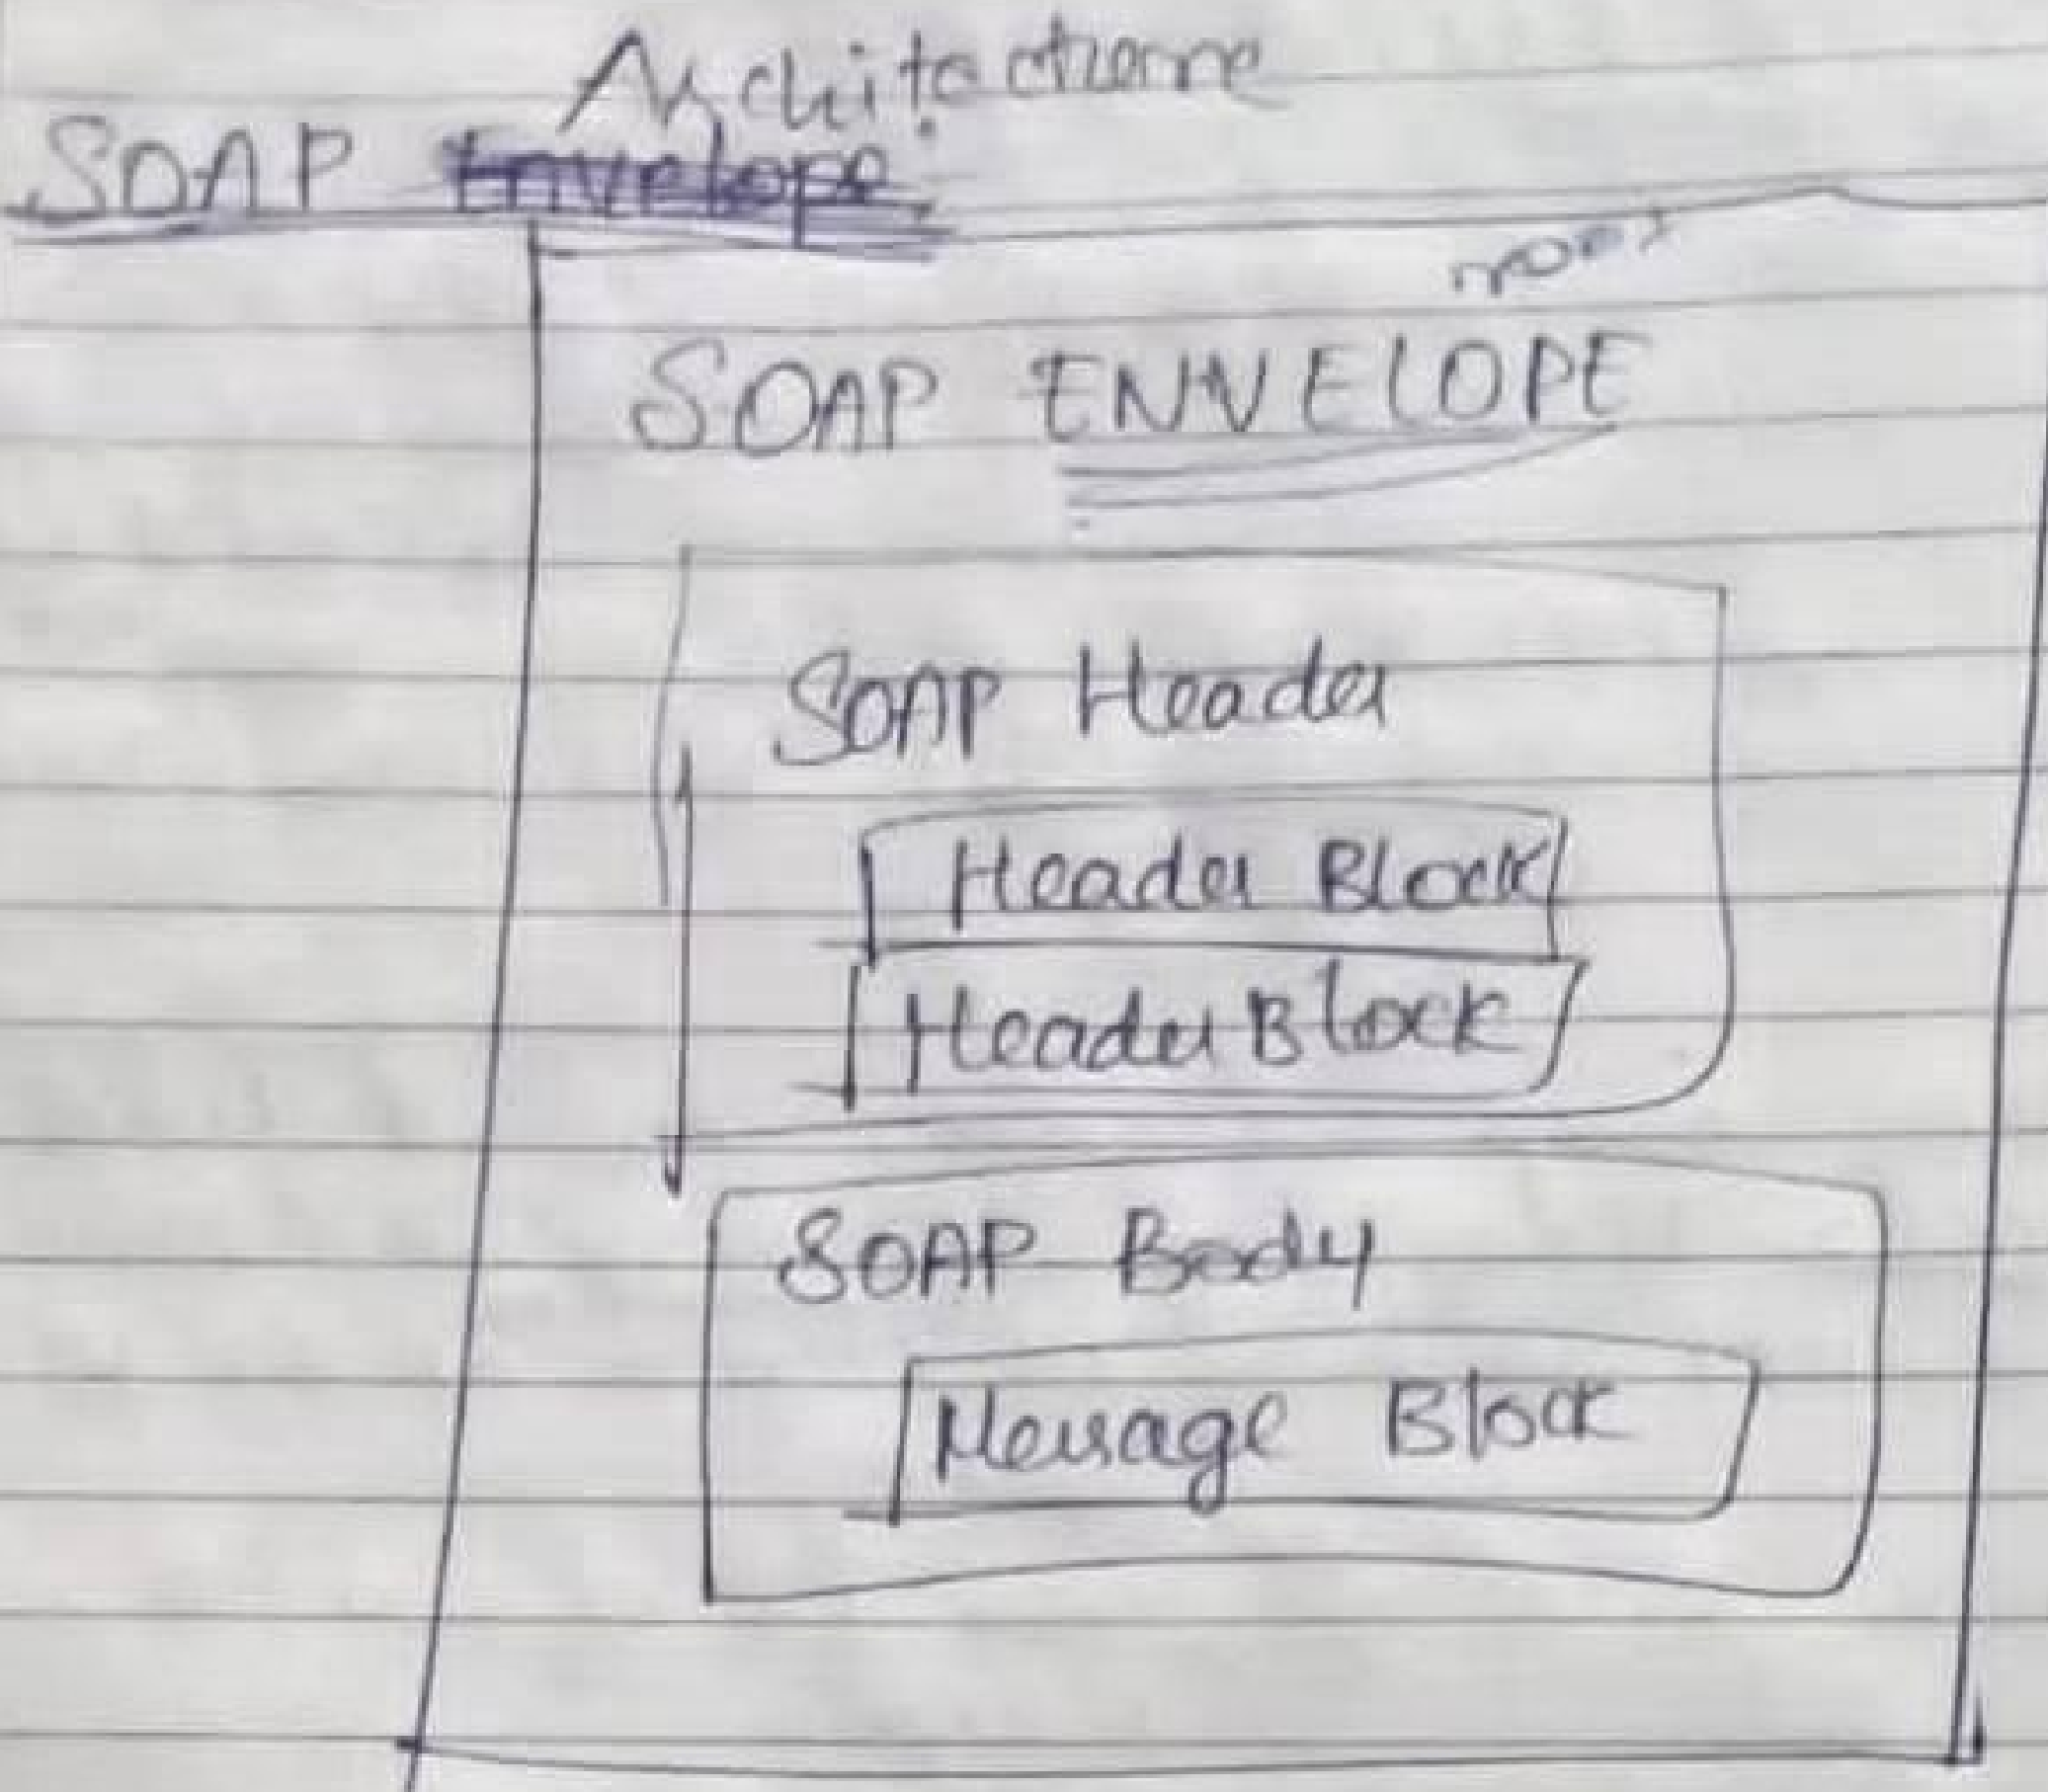 Architecture
SOAP Envelope:
root
SOAP ENVELOPE
SOAP Header
Header Block
Header Block
SOAP Body
Message Block